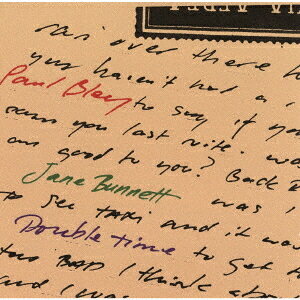 over there
you haven't had a
Paul Bley to say if you
you last nite. we
am good to you? Back
Jane Bunnett was I
to see TAXI and it was
Double time to get
too BAD I think abou
and I was